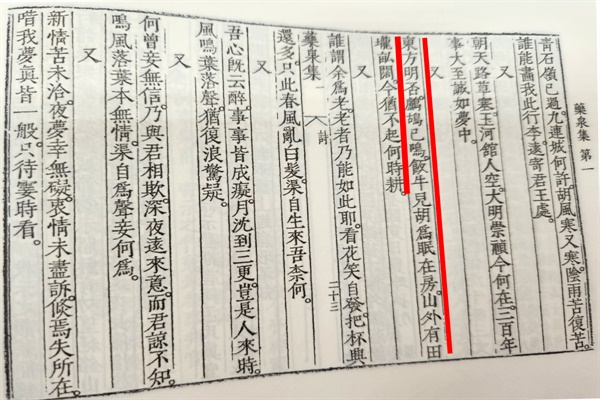 藥泉集 第一
青石嶺已過。九連城何許。胡風寒又寒。陰雨苦復苦。
誰能畫我此行李。遠寄君王處。
又
朝天路草塞。玉河館人空。大明崇禎今何在。三百年
事大至誠如夢中。
又
東方明否鸕鴣已鳴。飯牛兒胡爲眠在房。山外有田
壠畝闊。今猶不起何時耕。
又
誰謂余爲老。老者乃能如此耶。看花笑自發。把杯興
藥泉集 一 詩 二十三
還多。只此春風亂白髮。渠自生來吾奈何。
又
吾心旣云醉。事事皆成癡。月沈到三更。豈是人來時。
風鳴葉落聲。猶復浪驚疑。
又
何曾妾無信。乃與君相欺。深夜遠來意。而君諒不知。
鳴風落葉本無情。渠自爲聲妾何爲。
又
新情苦未洽。夜夢幸無礙。衷情未盡訴。倐焉失所在。
喈我夢眞皆一般。只待霎時看。